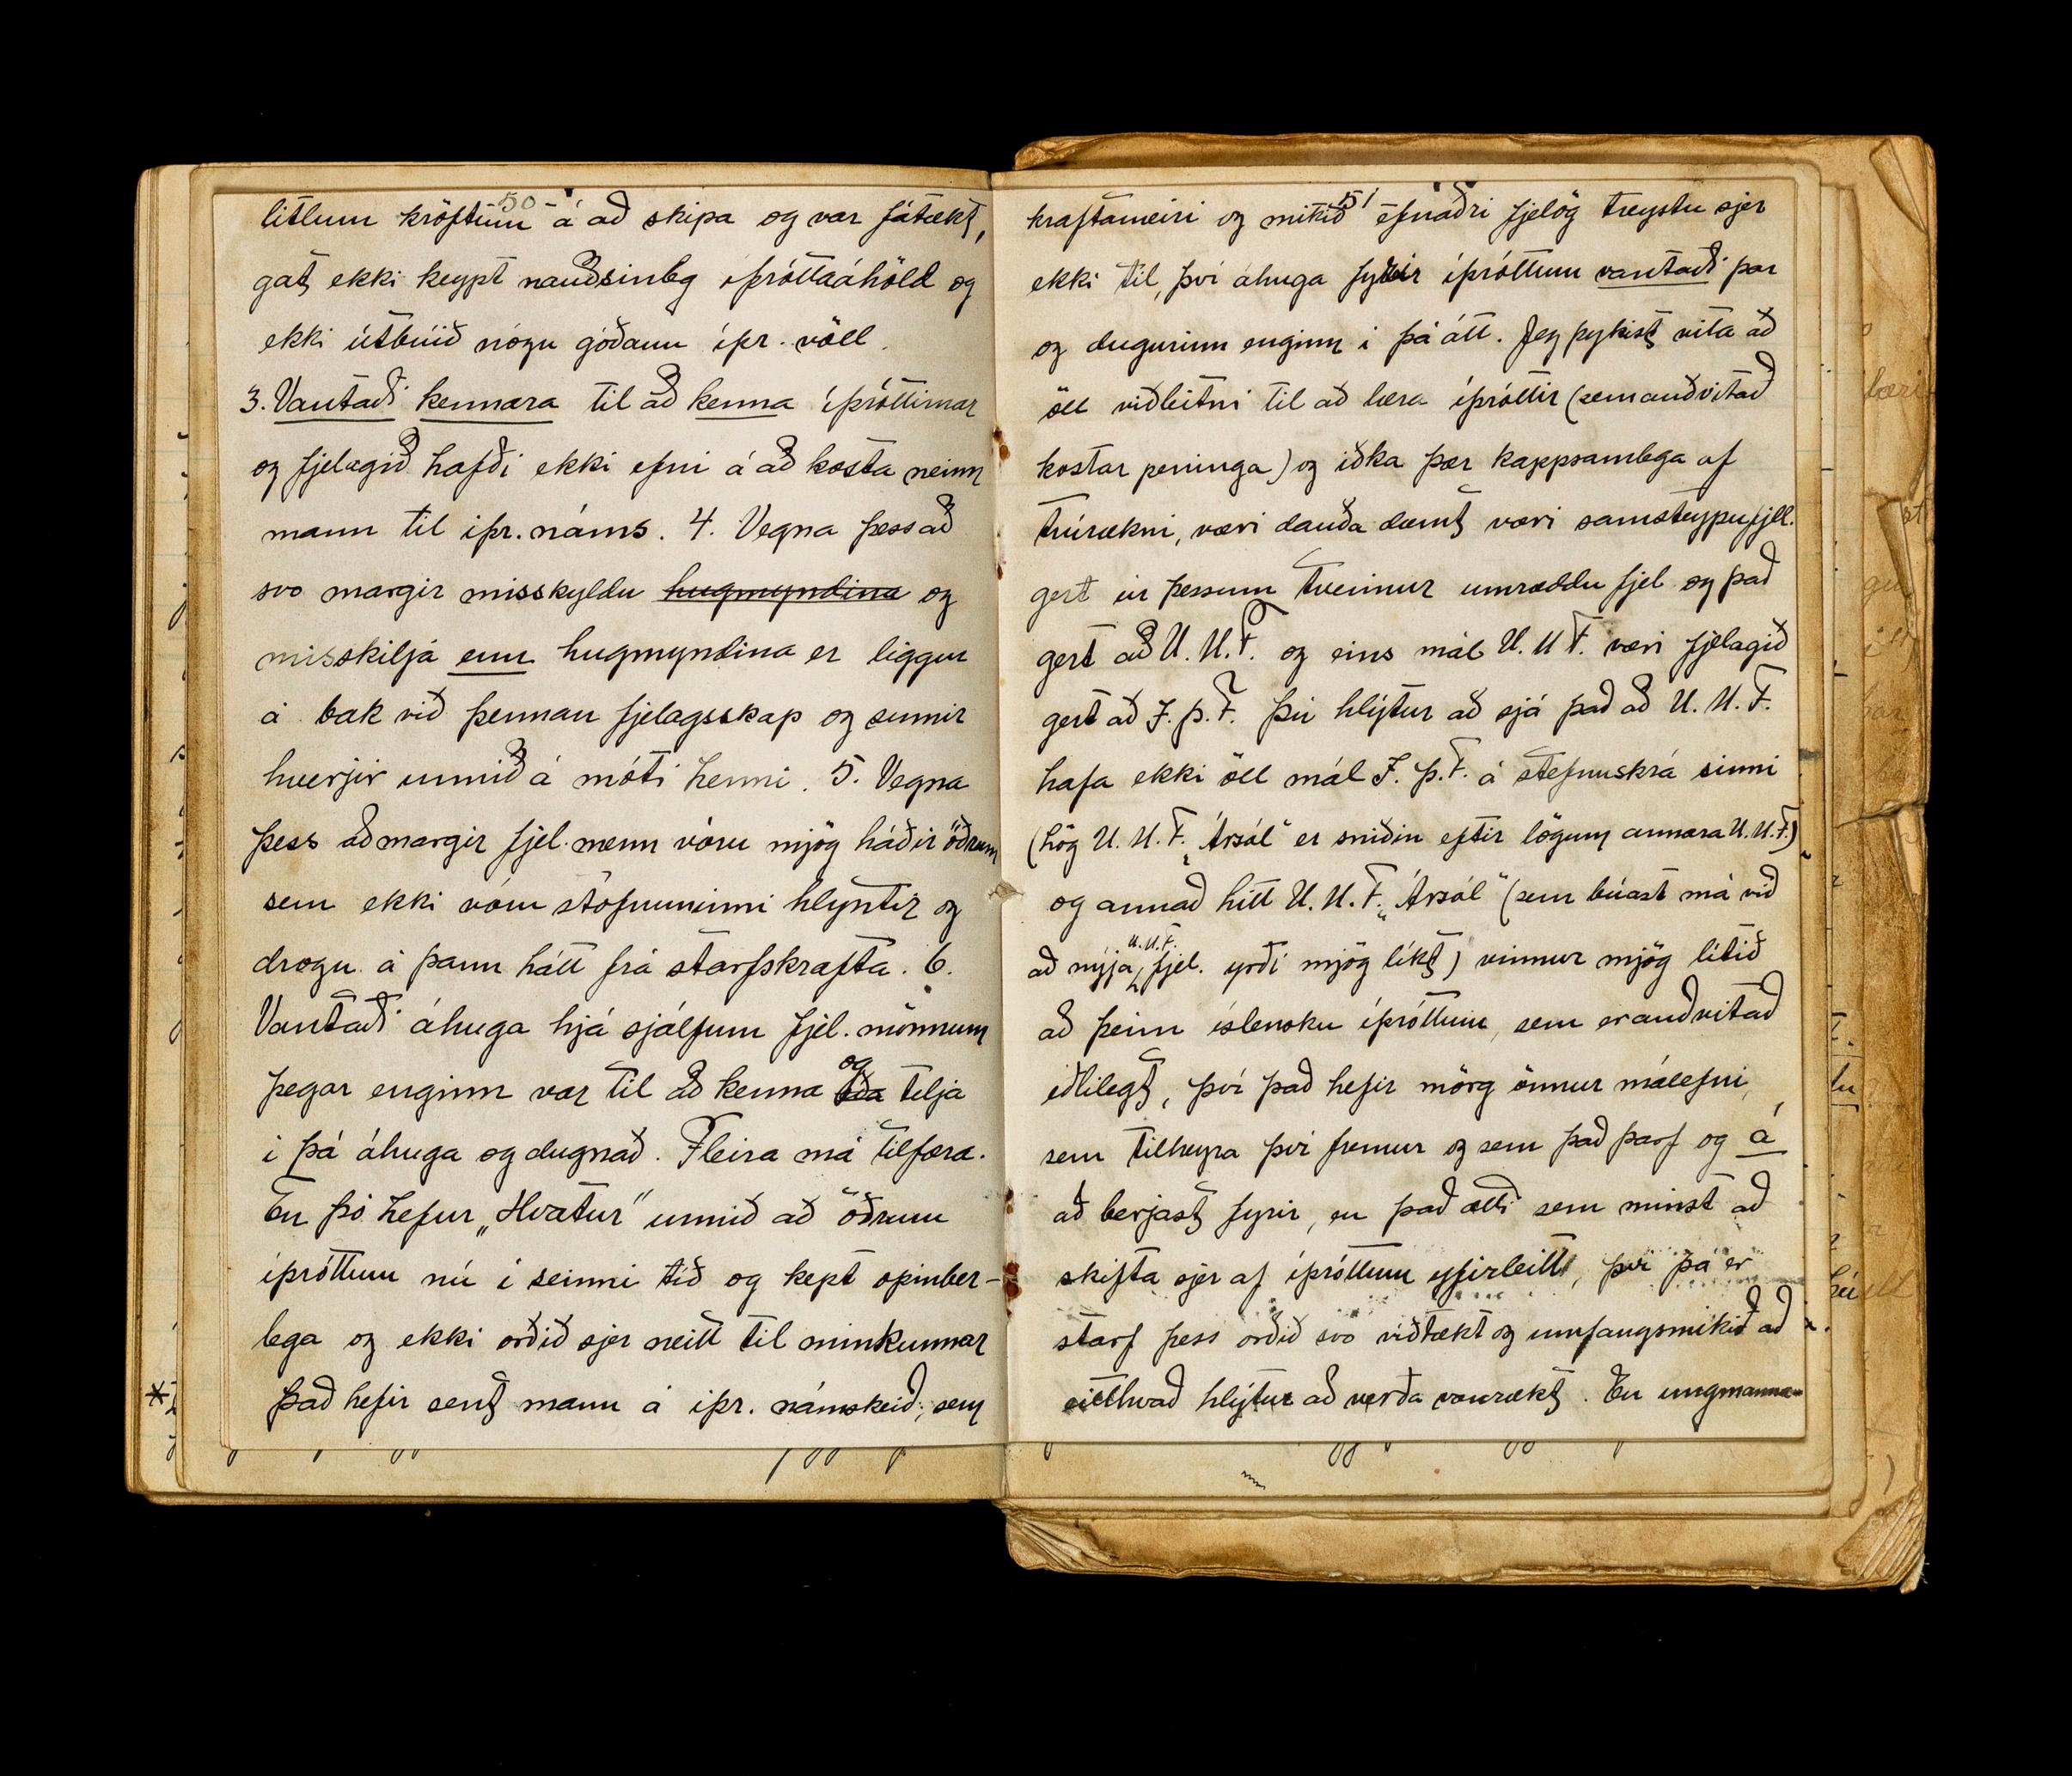 -50-
litlum kröftum á að skipa og var fátækt,
gat ekki keypt nauðsinleg íþróttaáhöld og
ekki útbúið nógu góðann íþr. völl.
3. Vantaði kennara til að kenna íþróttirnar
og fjelagið hafði ekki efni á að kosta neinn
mann til íþr. náms. 4. Vegna þess að
svo margir misskyldu hugmyndina og
misskilja enn hugmyndina er liggur
á bak við þennan fjelagsskap og sumir
hverjir unnið á móti henni. 5. Vegna
þess að margir fjel. menn vóru mjög háðir öðrum
sem ekki vóru stofnuninni hlyntir og
drogu á þann hátt frá starfskrafta. 6.
Vantaði áhuga hjá sjálfum fjel. mönnum
þegar enginn var til að kenna og telja
í þá áhuga og dugnað. Fleira má tilfæra.
En þó hefur „Hvatur" unnið að öðrum
íþróttum nú í seinni tíð og kept opinber-
lega og ekki orðið sjer neitt til minkunnar
Það hefir sent mann á íþr. námskeið, sem
51
kraftameiri og mikið efnaðri fjelög treystu sjer
ekki til, því áhuga fyrir íþróttum vantaði þar
og dugurinn enginn í þá átt. Jeg þykist vita að
öll viðleitni til að læra íþróttir (sem auðvitað
kostar peninga) og iðka þær kappsamlega af
trúrækni, væri dauða dæmt væri samsteypufjel.
gert úr þessum tveimur umræddu fjel og það
gert að U.U.F. og eins mál U.U.F. væri fjelagið
gert að Í.Þ.F. Þú hlýtur að sjá það að U.U.F.
hafa ekki öll mál Í.Þ.F. á stefnuskrá sinni
(lög U.U.F. „Ársól" er sniðin eftir lögum annara U.U.F.)
og annað hitt U.U.F. „Ársól" (sem búast má við
að nýja U.U.F. fjel. yrði mjög líkt) vinnur mjög lítið
að þeim íslensku íþróttum, sem er auðvitað
eðlilegt, því það hefir mörg önnur málefni,
sem tilheyra því fremur og sem það þarf og á
að berjast fyrir, en það ætti sem minst að
skifta sjer af íþróttum yfirleitt, því þá er
starf þess orðið svo viðtækt og umfangsmikið að
eitthvað hlýtur að verða vanrækt. En ungmanna-